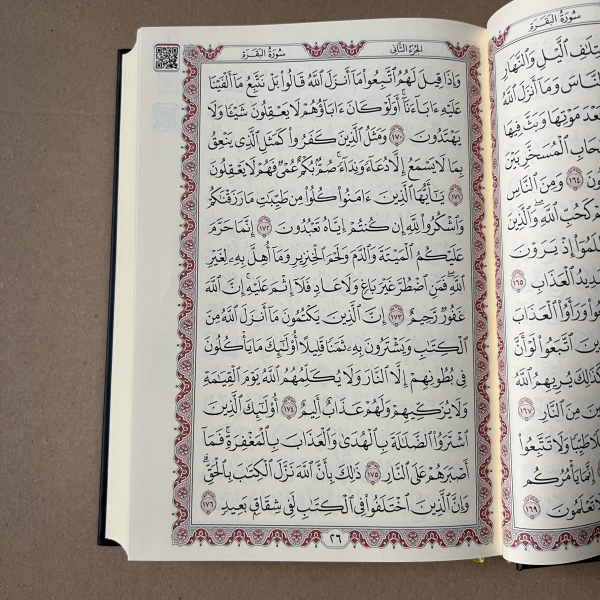 سُورَةُ البَقَرَةِ
تِلَٰفِ ٱلَّيۡلِ وَٱلنَّهَارِ
نَّاسَ وَمَآ أَنزَلَ ٱللَّهُ
بَعۡدَ مَوۡتِهَا وَبَثَّ فِيهَا
حَابِ ٱلۡمُسَخَّرِ بَيۡنَ
١٦٤ وَمِنَ ٱلنَّاسِ
مۡ كَحُبِّ ٱللَّهِۖ وَٱلَّذِينَ
ظَلَمُوٓاْ إِذۡ يَرَوۡنَ
دِيدُ ٱلۡعَذَابِ ١٦٥
وَرَأَوُاْ ٱلۡعَذَابَ
ٱتَّبَعُواْ لَوۡ أَنَّ
كَذَٰلِكَ يُرِيهِمُ ٱللَّهُ
مِنَ ٱلنَّارِ ١٦٧
طَيِّبٗا وَلَا تَتَّبِعُواْ
إِنَّمَا يَأۡمُرُكُم
تَعۡلَمُونَ ١٦٩
الجُزۡءُ الثَّانِي سُورَةُ البَقَرَةِ
وَإِذَا قِيلَ لَهُمُ ٱتَّبِعُواْ مَآ أَنزَلَ ٱللَّهُ قَالُواْ بَلۡ نَتَّبِعُ مَآ أَلۡفَيۡنَا
عَلَيۡهِ ءَابَآءَنَآۚ أَوَلَوۡ كَانَ ءَابَآؤُهُمۡ لَا يَعۡقِلُونَ شَيۡـٔٗا وَلَا
يَهۡتَدُونَ ١٧٠ وَمَثَلُ ٱلَّذِينَ كَفَرُواْ كَمَثَلِ ٱلَّذِي يَنۡعِقُ
بِمَا لَا يَسۡمَعُ إِلَّا دُعَآءٗ وَنِدَآءٗۚ صُمُّۢ بُكۡمٌ عُمۡيٞ فَهُمۡ لَا يَعۡقِلُونَ
١٧١ يَٰٓأَيُّهَا ٱلَّذِينَ ءَامَنُواْ كُلُواْ مِن طَيِّبَٰتِ مَا رَزَقۡنَٰكُمۡ
وَٱشۡكُرُواْ لِلَّهِ إِن كُنتُمۡ إِيَّاهُ تَعۡبُدُونَ ١٧٢ إِنَّمَا حَرَّمَ
عَلَيۡكُمُ ٱلۡمَيۡتَةَ وَٱلدَّمَ وَلَحۡمَ ٱلۡخِنزِيرِ وَمَآ أُهِلَّ بِهِۦ لِغَيۡرِ
ٱللَّهِۖ فَمَنِ ٱضۡطُرَّ غَيۡرَ بَاغٖ وَلَا عَادٖ فَلَآ إِثۡمَ عَلَيۡهِۚ إِنَّ ٱللَّهَ
غَفُورٞ رَّحِيمٌ ١٧٣ إِنَّ ٱلَّذِينَ يَكۡتُمُونَ مَآ أَنزَلَ ٱللَّهُ مِنَ
ٱلۡكِتَٰبِ وَيَشۡتَرُونَ بِهِۦ ثَمَنٗا قَلِيلًا أُوْلَٰٓئِكَ مَا يَأۡكُلُونَ
فِي بُطُونِهِمۡ إِلَّا ٱلنَّارَ وَلَا يُكَلِّمُهُمُ ٱللَّهُ يَوۡمَ ٱلۡقِيَٰمَةِ
وَلَا يُزَكِّيهِمۡ وَلَهُمۡ عَذَابٌ أَلِيمٌ ١٧٤ أُوْلَٰٓئِكَ ٱلَّذِينَ
ٱشۡتَرَوُاْ ٱلضَّلَٰلَةَ بِٱلۡهُدَىٰ وَٱلۡعَذَابَ بِٱلۡمَغۡفِرَةِۚ فَمَآ
أَصۡبَرَهُمۡ عَلَى ٱلنَّارِ ١٧٥ ذَٰلِكَ بِأَنَّ ٱللَّهَ نَزَّلَ ٱلۡكِتَٰبَ بِٱلۡحَقِّۗ
وَإِنَّ ٱلَّذِينَ ٱخۡتَلَفُواْ فِي ٱلۡكِتَٰبِ لَفِي شِقَاقِۭ بَعِيدٖ ١٧٦
٢٦